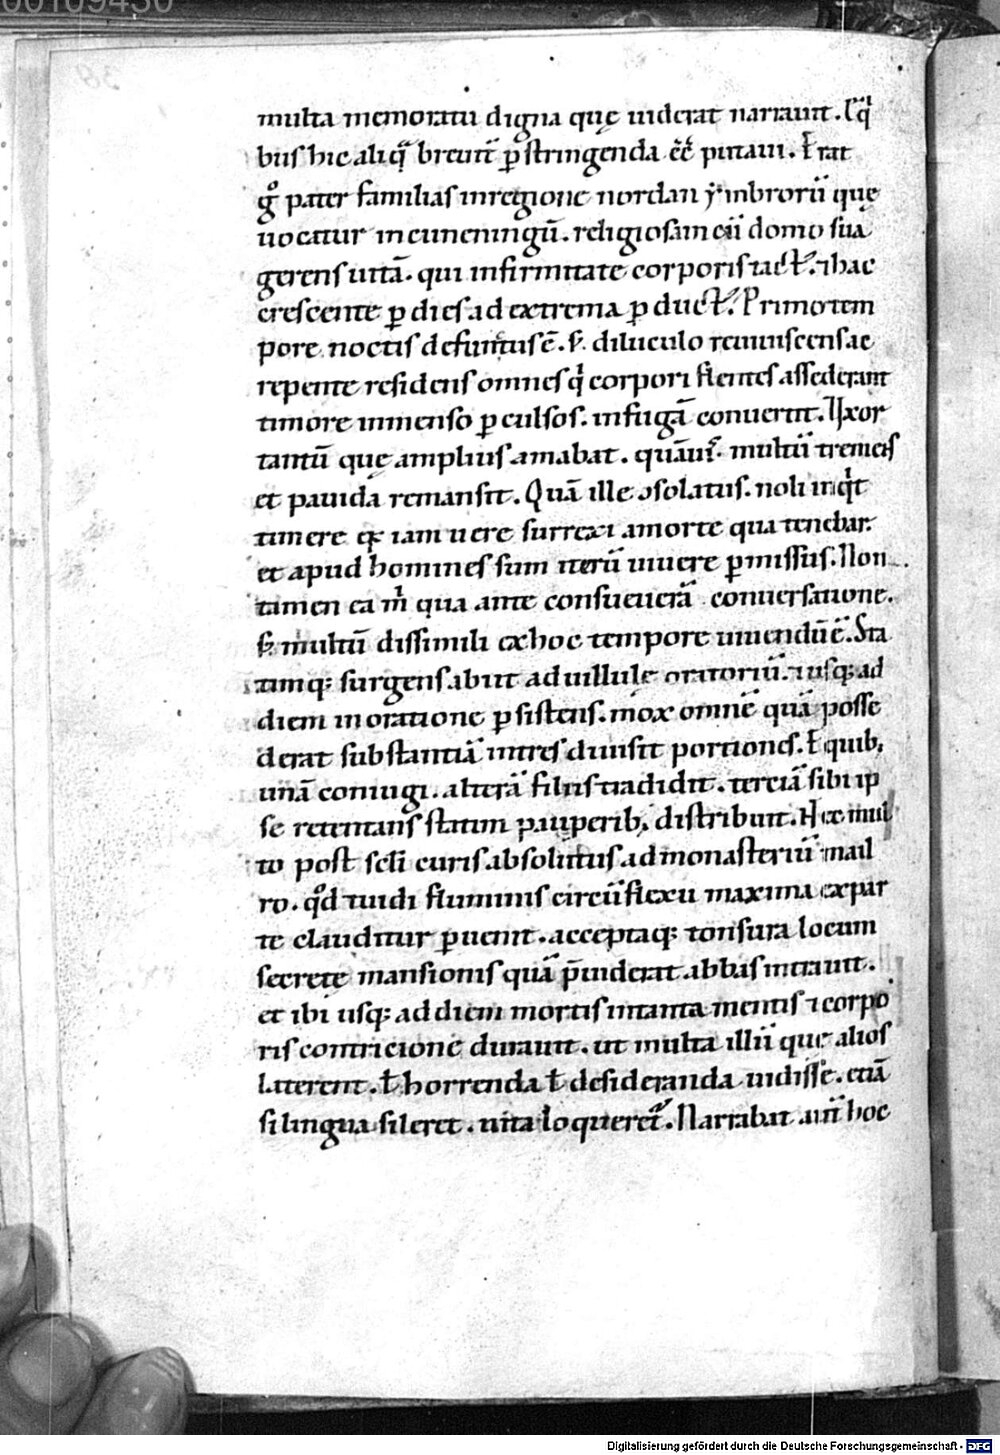 00109430
multa memoratu digna quę uiderat narrauit. E q̄
bus hic aliq̄ breuit̄ p̄stringenda eē putaui. Erat
gͦ pater familias in regione nordan ẏmbrorū quę
uocatur incuneningū. religiosam cū domo sua
gerens uitā. qui infirmitate corporis tact᷒. ⁊ hac
crescente ꝑ dies ad extrema ꝑduct᷒. Primo tem
pore noctis defunctus ē. sꝫ diluculo reuiuiscens ac
repente residens omnes q̄ corpori flentes assederant
timore inmenso ꝑculsos. in fugā conuertit. Uxor
tantū quę amplius amabat. quāuis multū tremens
et pauida remansit. Quā ille ꝯsolatus. noli inq̇t
timere qꝛ iam uere surrexi a morte qua tenebar.
et apud homines sum iterū uiuere ꝑmissus. Non
tamen ea m̄ qua ante consueuerā conuersatione.
sꝫ multū dissimili ex hoc tempore uiuendū ē. Sta
timq; surgens abiit ad uillulę oratoriū. ⁊ usq; ad
diem in oratione ꝑsistens. mox omnē quā posse
derat substantiā in tres diuisit portiones. E quib;
unā coniugi. alterā filiis tradidit. terciā sibi ip
se retentans statim pauperib; distribuit. Nec mul
to post scl̄i curis absolutus ad monasteriū mail
ro. qd̄ tuidi fluminis circūflexu maxima ex par
te clauditur ꝑuenit. acceptaq; tonsura locum
secrete mansionis quā p̄uiderat abbas intrauit.
et ibi usq; ad diem mortis in tanta mentis ⁊ corpo
ris contricione durauit. ut multa illū quę alios
laterent. ł horrenda ł desideranda uidisse. etiā
si lingua sileret. uita loqueret᷒. Narrabat aut̄ hoc
Digitalisierung gefördert durch die Deutsche Forschungsgemeinschaft - DFG